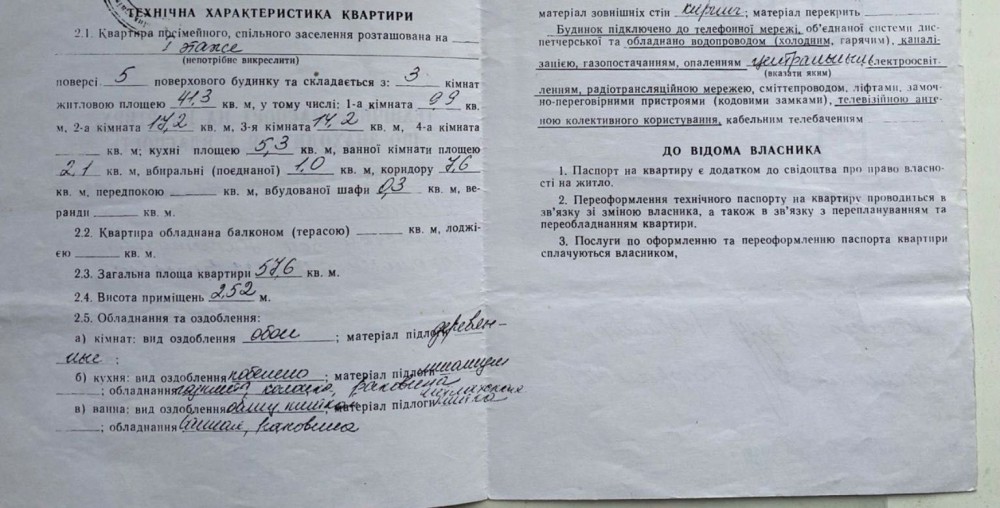 ТЕХНІЧНА ХАРАКТЕРИСТИКА КВАРТИРИ
2.1. Квартира посімейного, спільного заселення розташована на
1 этаже
(непотрібне викреслити)
поверсі 5 поверхового будинку та складається з: 3 кімнат
житловою площею 41,3 кв. м, у тому числі: 1-а кімната 9,9 кв.
м, 2-а кімната 17,2 кв. м, 3-я кімната 14,2 кв. м, 4-а кімната
кв. м; кухні площею 5,3 кв. м, ванної кімнати площею
2,1 кв. м, вбиральні (поєднаної) 1,0 кв. м, коридору 7,6
кв. м, передпокою кв. м, вбудованої шафи 0,3 кв. м, ве-
ранди кв. м.
2.2. Квартира обладнана балконом (терасою) кв. м, лоджі-
єю кв. м.
2.3. Загальна площа квартири 57,6 кв. м.
2.4. Висота приміщень 2,52 м.
2.5. Обладнання та оздоблення:
а) кімнат: вид оздоблення обои ; матеріал підлоги деревян-
ные ;
б) кухня: вид оздоблення побелено ; матеріал підлоги
; обладнання колонка, раковина
в) ванна: вид оздоблення плитка ; матеріал підлоги плитка
; обладнання раковина
матеріал зовнішніх стін кирпич ; матеріал перекрить
Будинок підключено до телефонної мережі, об'єднаної системи дис-
петчерської та обладнано водопроводом (холодним, гарячим), каналі-
зацією, газопостачанням, опаленням центральным електроосвіт-
(вказати яким)
ленням, радіотрансляційною мережею, сміттєпроводом, ліфтами, замоч-
но-переговірними пристроями (кодовими замками), телевізійною анте-
ною колективного користування, кабельним телебаченням
ДО ВІДОМА ВЛАСНИКА
1. Паспорт на квартиру є додатком до свідоцтва про право власно-
сті на житло.
2. Переоформлення технічного паспорту на квартиру проводиться в
зв'язку зі зміною власника, а також в зв'язку з переплануванням та
переобладнанням квартири.
3. Послуги по оформленню та переоформленню паспорта квартири
сплачуються власником,